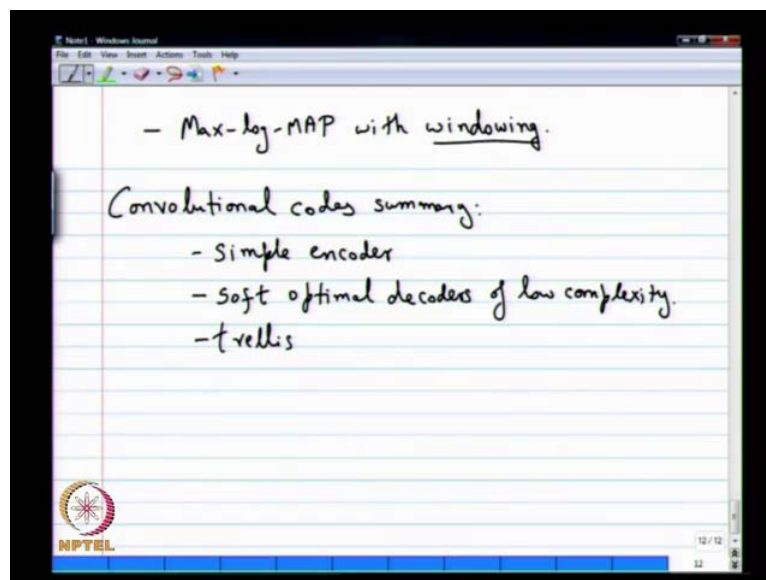 Note1 - Windows Journal
File Edit View Insert Actions Tools Help
- Max-log-MAP with windowing.
Convolutional codes summary:
- Simple encoder
- Soft optimal decoders of low complexity.
- trellis
NPTEL
12 / 12
12